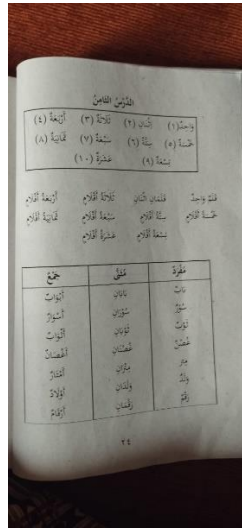 الدَّرْسُ الثَّامِنُ
وَاحِدٌ (١) اِثْنَانِ (٢) ثَلَاثَةٌ (٣) أَرْبَعَةٌ (٤)
خَمْسَةٌ (٥) سِتَّةٌ (٦) سَبْعَةٌ (٧) ثَمَانِيَةٌ (٨)
تِسْعَةٌ (٩) عَشَرَةٌ (١٠)
قَلَمٌ وَاحِدٌ قَلَمَانِ اثْنَانِ ثَلَاثَةُ أَقْلَامٍ أَرْبَعَةُ أَقْلَامٍ
خَمْسَةُ أَقْلَامٍ سِتَّةُ أَقْلَامٍ سَبْعَةُ أَقْلَامٍ ثَمَانِيَةُ أَقْلَامٍ
تِسْعَةُ أَقْلَامٍ عَشَرَةُ أَقْلَامٍ
مُفْرَدٌ مُثَنًّى جَمْعٌ
بَابٌ بَابَانِ أَبْوَابٌ
سُوْرٌ سُوْرَانِ أَسْوَارٌ
ثَوْبٌ ثَوْبَانِ أَثْوَابٌ
غُصْنٌ غُصْنَانِ أَغْصَانٌ
مِتْرٌ مِتْرَانِ أَمْتَارٌ
وَلَدٌ وَلَدَانِ أَوْلَادٌ
رَقْمٌ رَقْمَانِ أَرْقَامٌ
٢٤